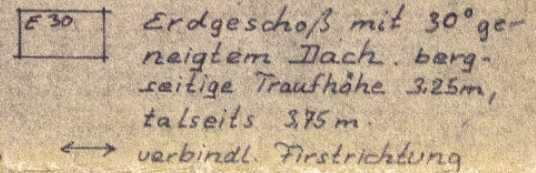 E 30 Erdgeschoß mit 30° ge-
neigtem Dach. berg-
seitige Traufhöhe 3.25m,
talseits 3,75 m.
verbindl. Firstrichtung